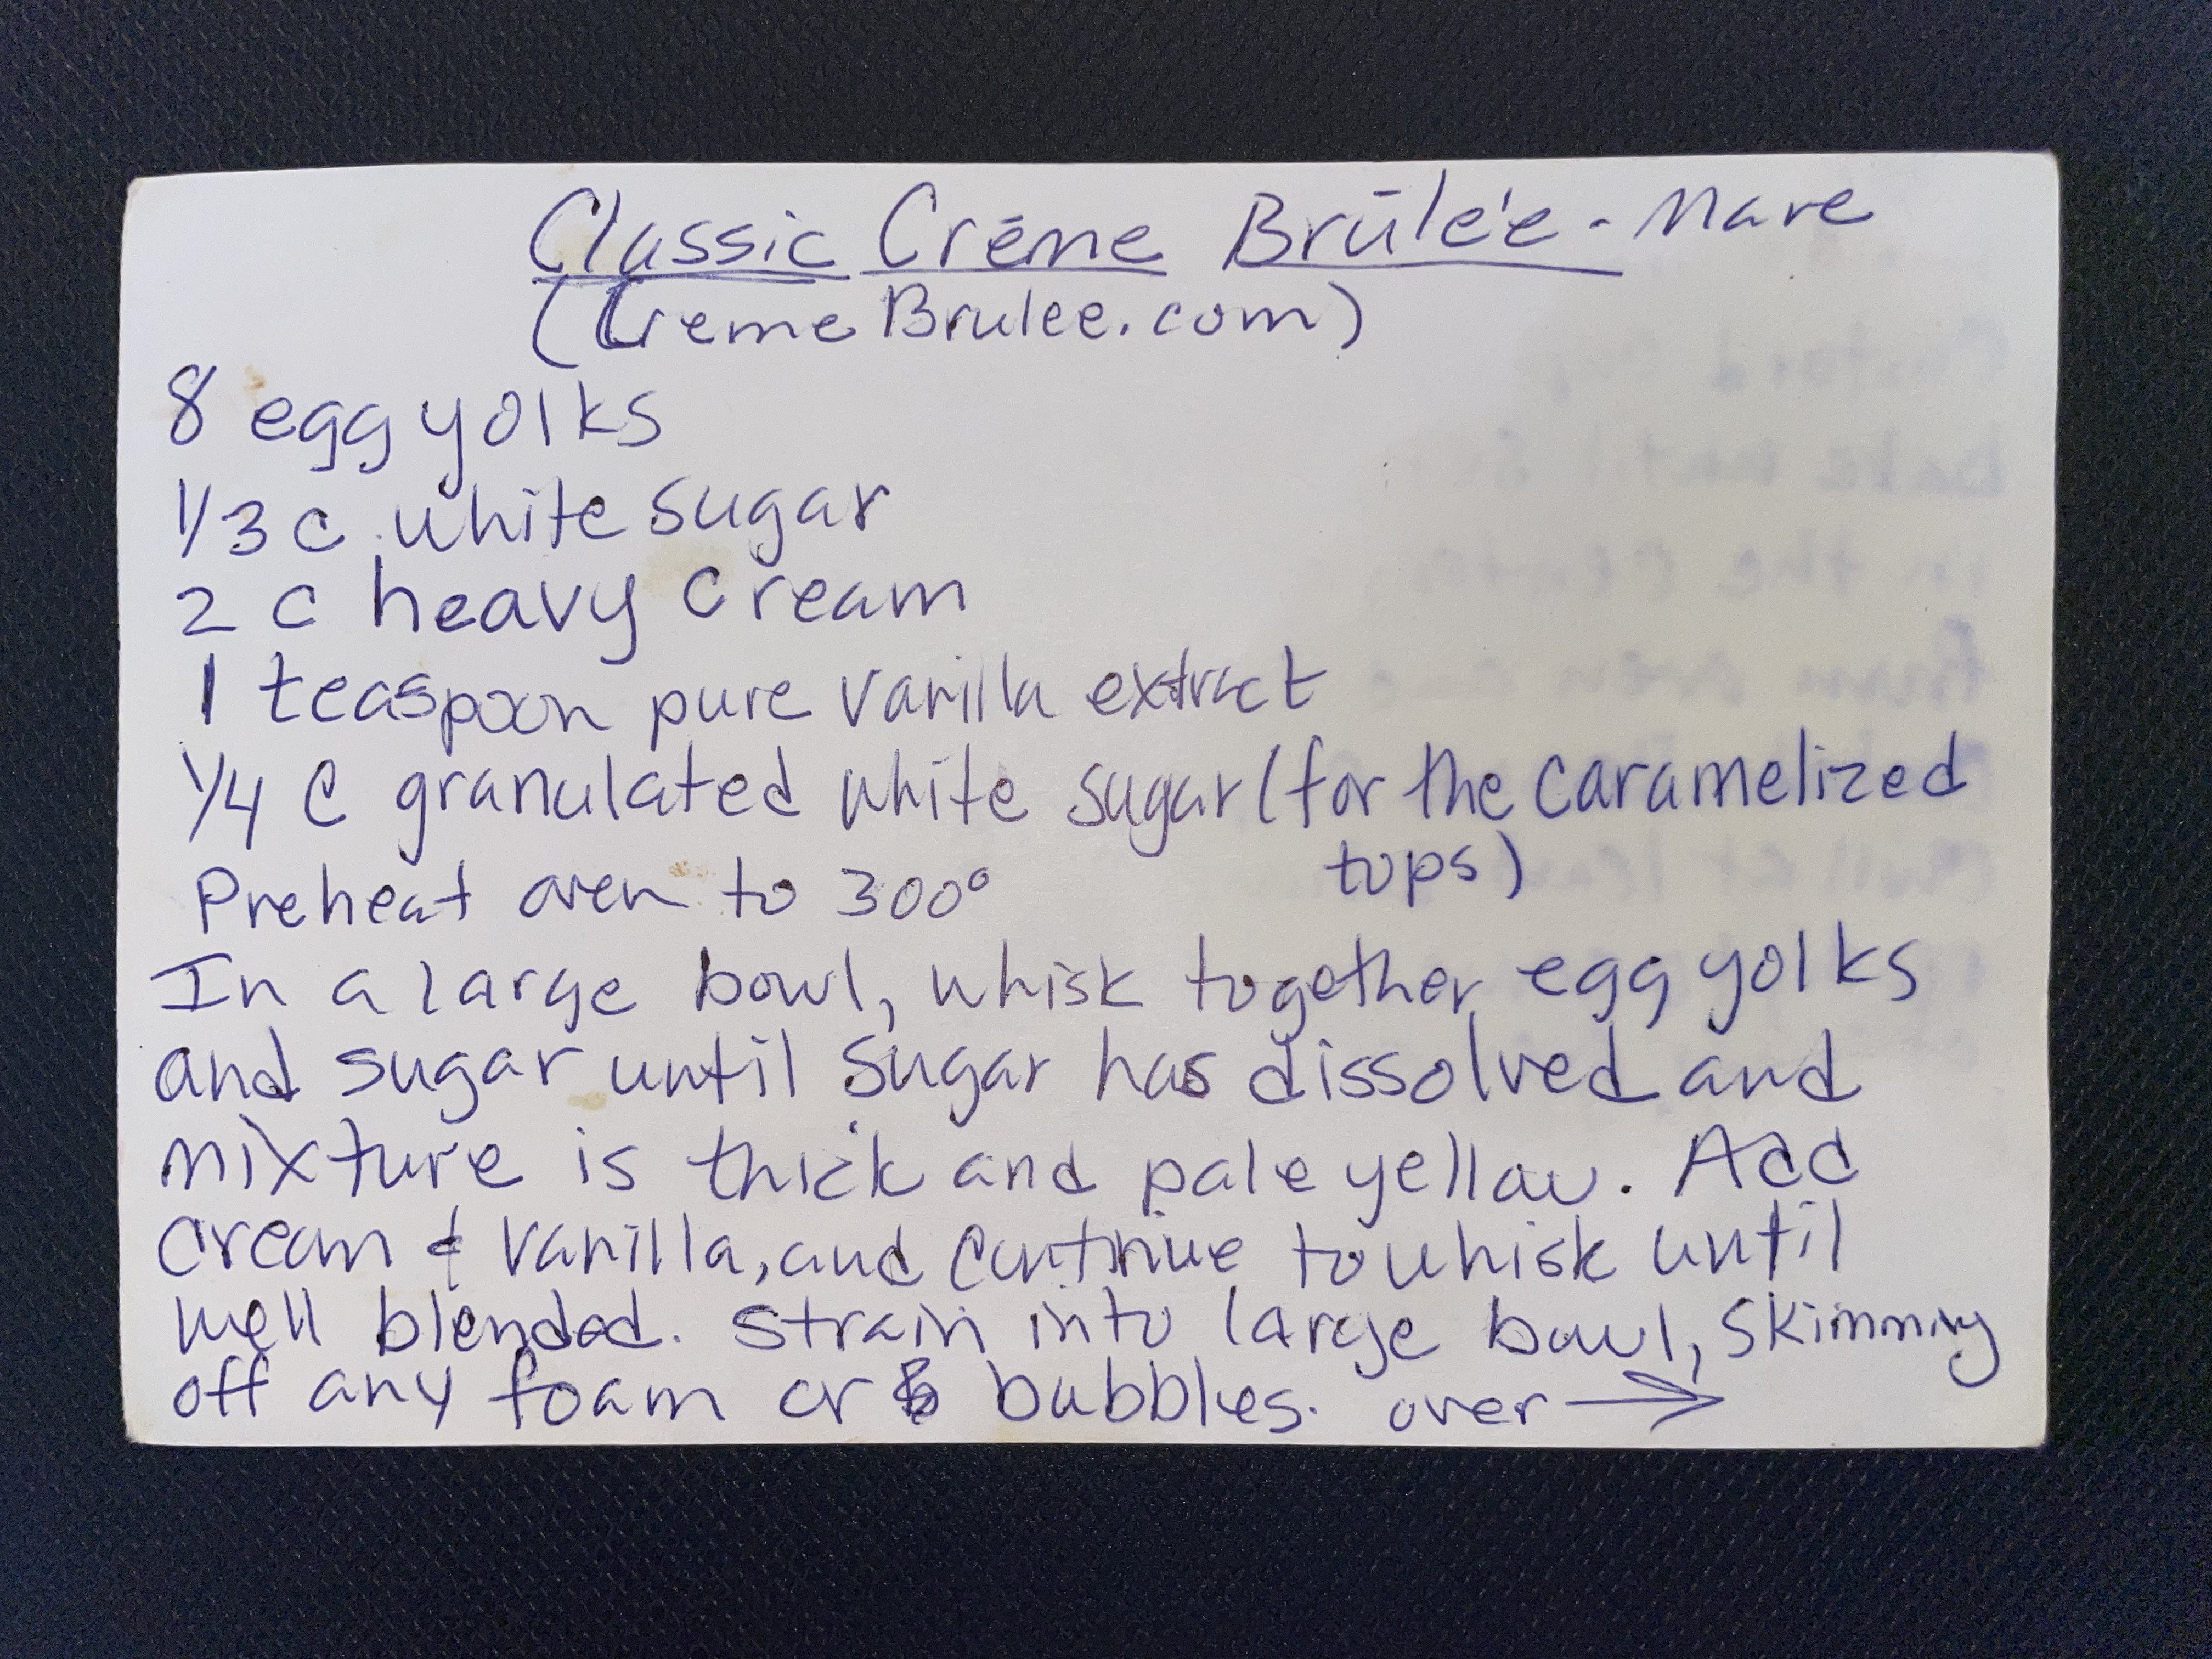 Classic Créme Brūlée - Mare
(CremeBrulee.com)
8 egg yolks
1/3 c white sugar
2 c heavy cream
1 teaspoon pure vanilla extract
1/4 c granulated white sugar (for the caramelized
tops)
Preheat oven to 300°
In a large bowl, whisk together egg yolks
and sugar until sugar has dissolved and
mixture is thick and pale yellow. Add
cream & vanilla, and continue to whisk until
well blended. Strain into large bowl, skimming
off any foam or bubbles. over →